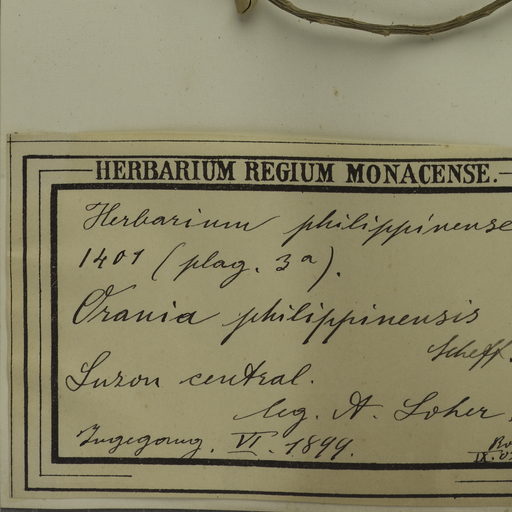 HERBARIUM REGIUM MONACENSE.
Herbarium philippinense
1401 (plag. 3a).
Orania philippinensis
Scheff.
Luzon central.
leg. A. Loher
VI. 1899.
IX.